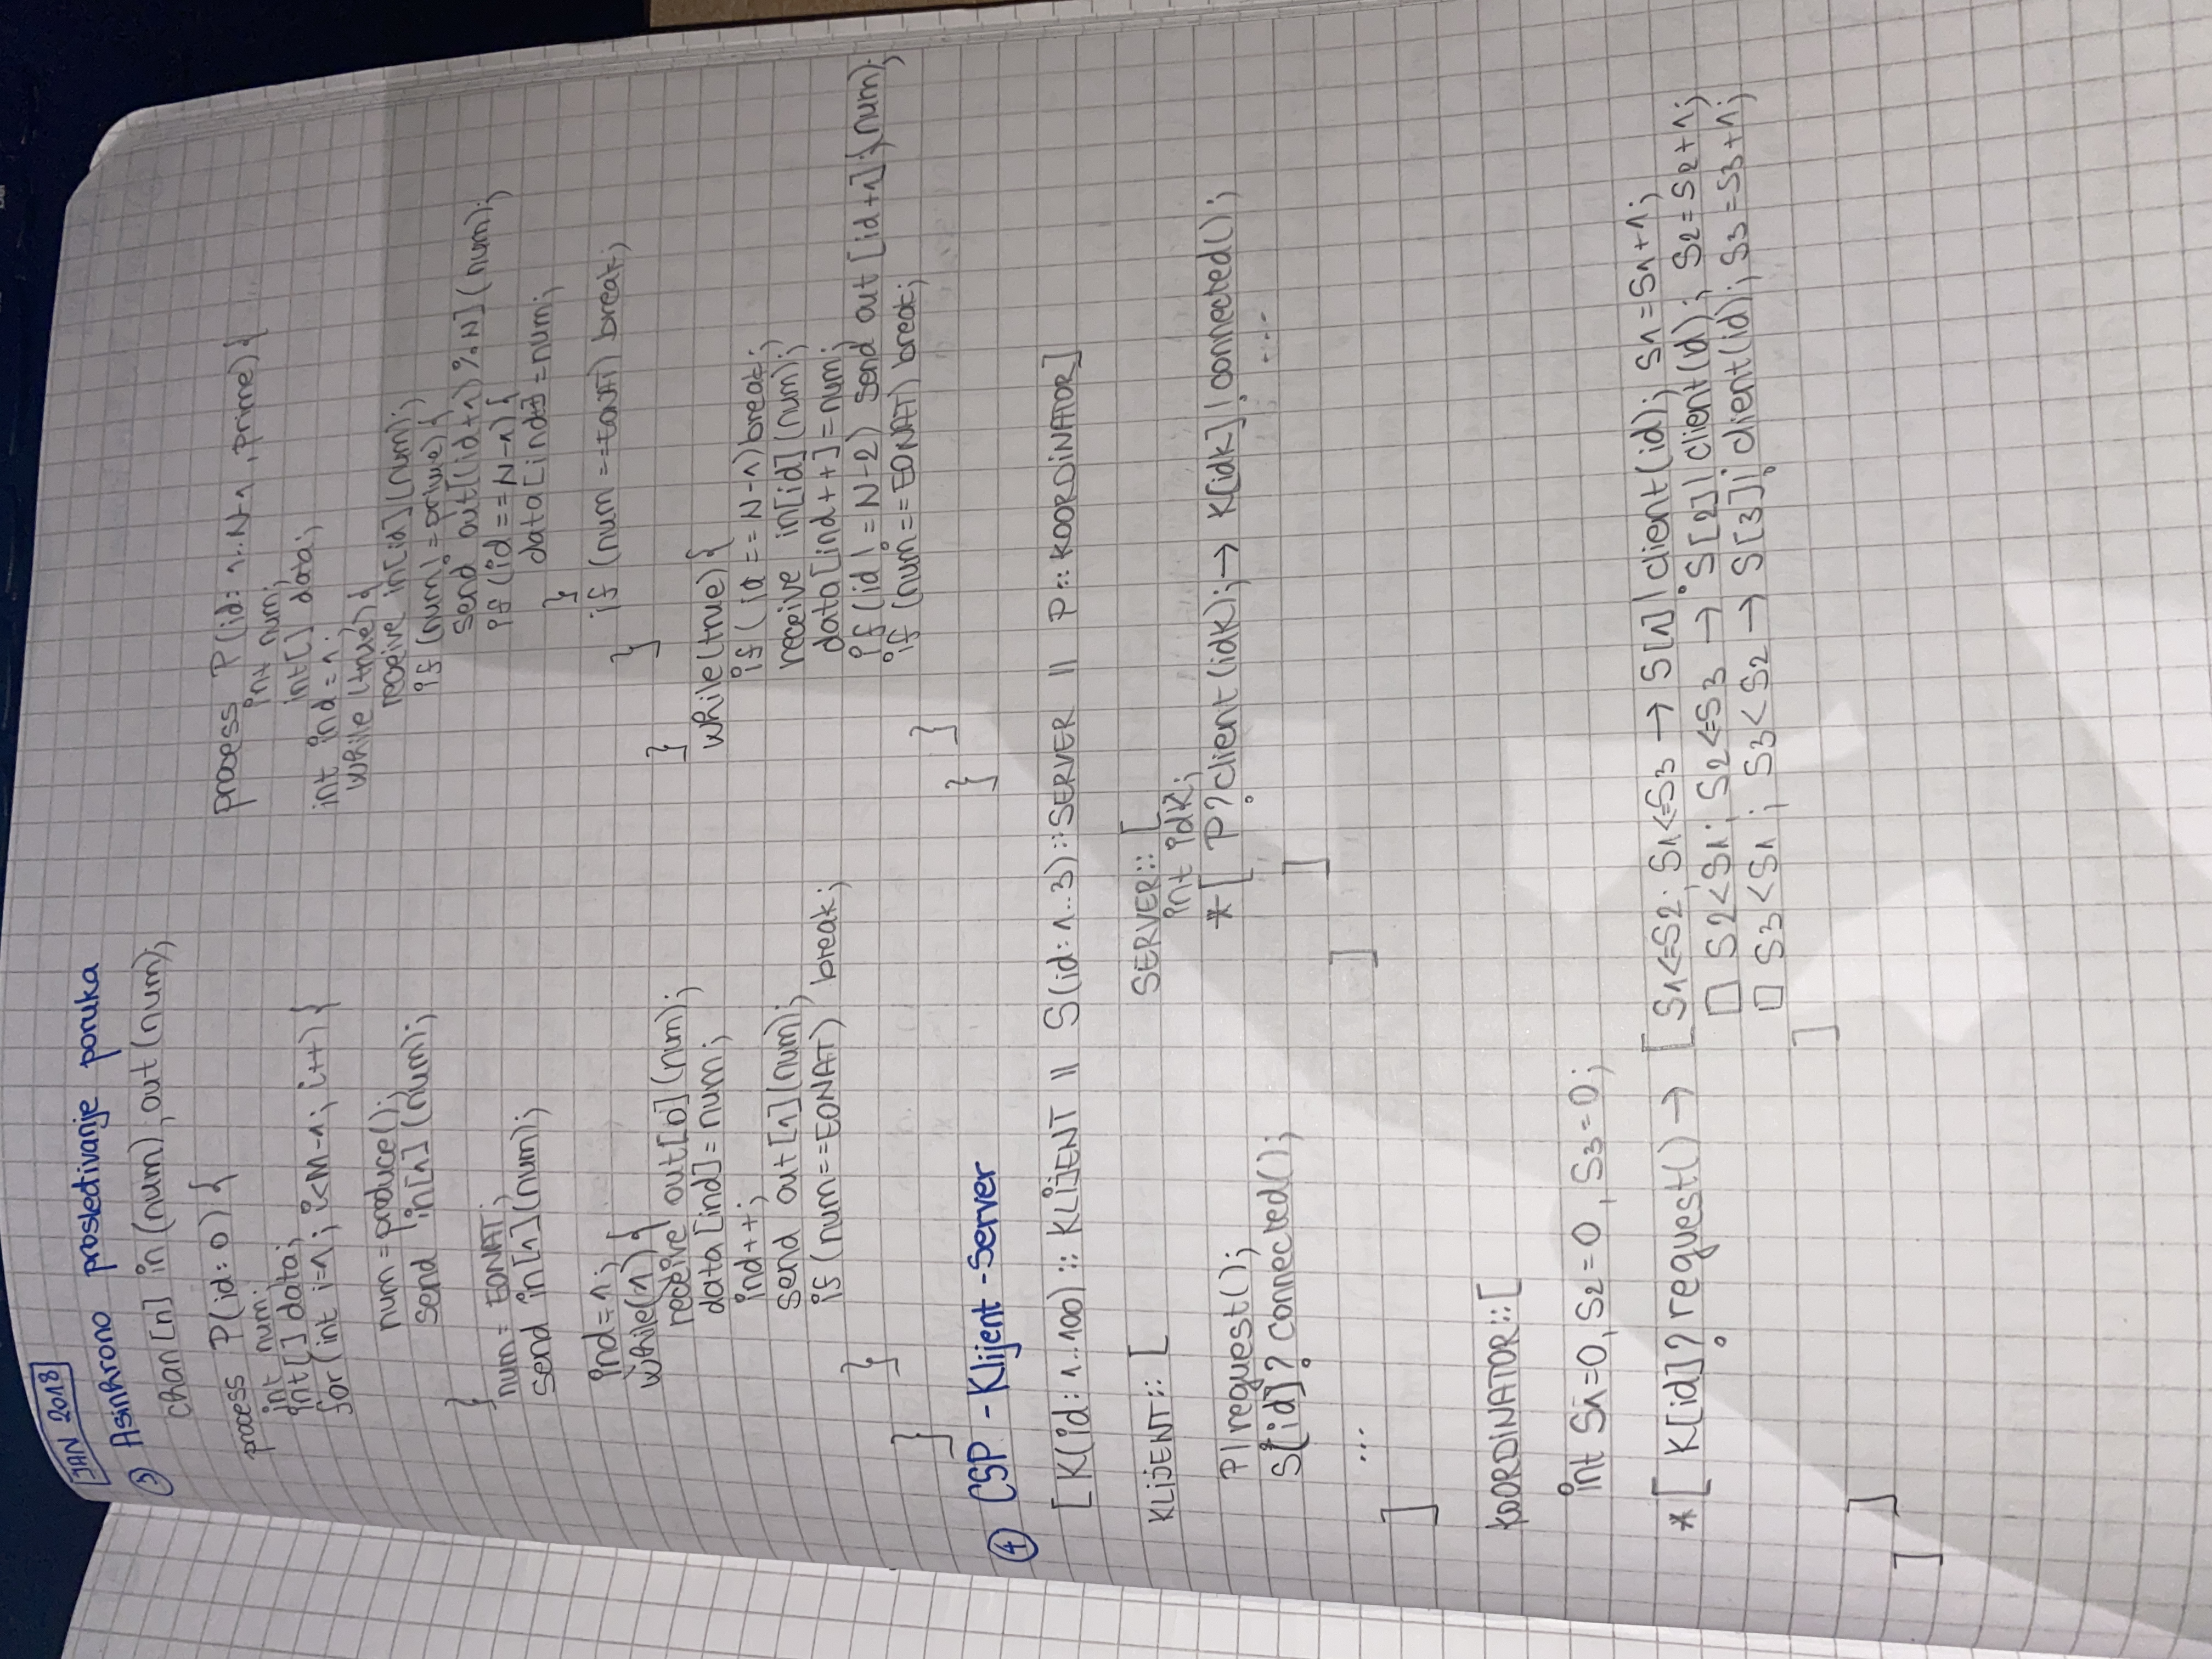 JAN 2018
③ Asinhrono prosleđivanje poruka
chan[n] in(num), out(num);
process P(id: 0) {
int num;
int[] data;
for(int i=1; i<M-1; i++) {
num=produce();
send in[1](num);
}
num= EONAT;
send in[1](num);
ind=1;
while(1){
receive out[0](num);
data[ind]=num;
ind++;
send out[1](num);
if(num==EONAT) break;
}
}
process P(id: 1..N-1, prime){
int num;
int[] data;
int ind=1;
while(true){
receive in[id](num);
if(num!=prime){
send out[(id+1)%N](num);
if(id==N-1){
data[ind++]=num;
}
if(num==EONAT) break;
}
}
while(true){
if(id==N-1)break;
receive in[id](num);
data[ind++]=num;
if(id!=N-2) send out[id+1](num);
if(num==EONAT) break;
}
}
④ CSP - Klijent - Server
[K(id:1..100)::KLIJENT || S(id:1..3)::SERVER || P::KOORDINATOR]
KLIJENT::[
P!request();
S[id]?connected();
...
]
SERVER::[
int idk;
*[ P?client(idk);→ K[idk]!connected();
...
]
]
KOORDINATOR::[
int S1=0, S2=0, S3=0;
*[ K[id]?request() → [S1<=S2; S1<=S3 → S[1]!client(id); S1=S1+1;
□ S2<S1; S2<=S3 → S[2]!client(id); S2=S2+1;
□ S3<S1; S3<S2 → S[3]!client(id); S3=S3+1;
]
]
]